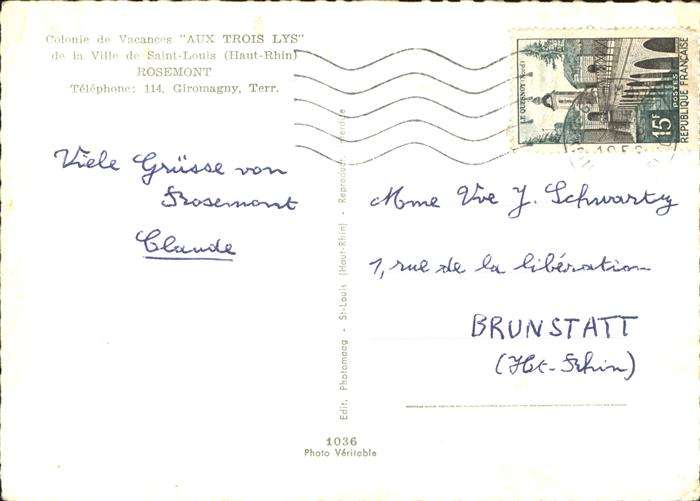 Colonie de Vacances "AUX TROIS LYS"
de la Ville de Saint-Louis (Haut-Rhin)
ROSEMONT
Téléphone: 114, Giromagny, Terr.
Viele Grüsse von
Rosemont
Claude
Edit. Photomaag - St-Louis (Haut-Rhin) - Reproduction interdite
1036
Photo Véritable
LE QUESNOY (Nord)
15F
POSTES
REPUBLIQUE FRANÇAISE
Mme Vve J. Schwartz
1, rue de la libération
BRUNSTATT
(Ht-Rhin)